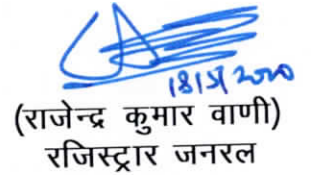 18/5/2020
(राजेन्द्र कुमार वाणी)
रजिस्ट्रार जनरल